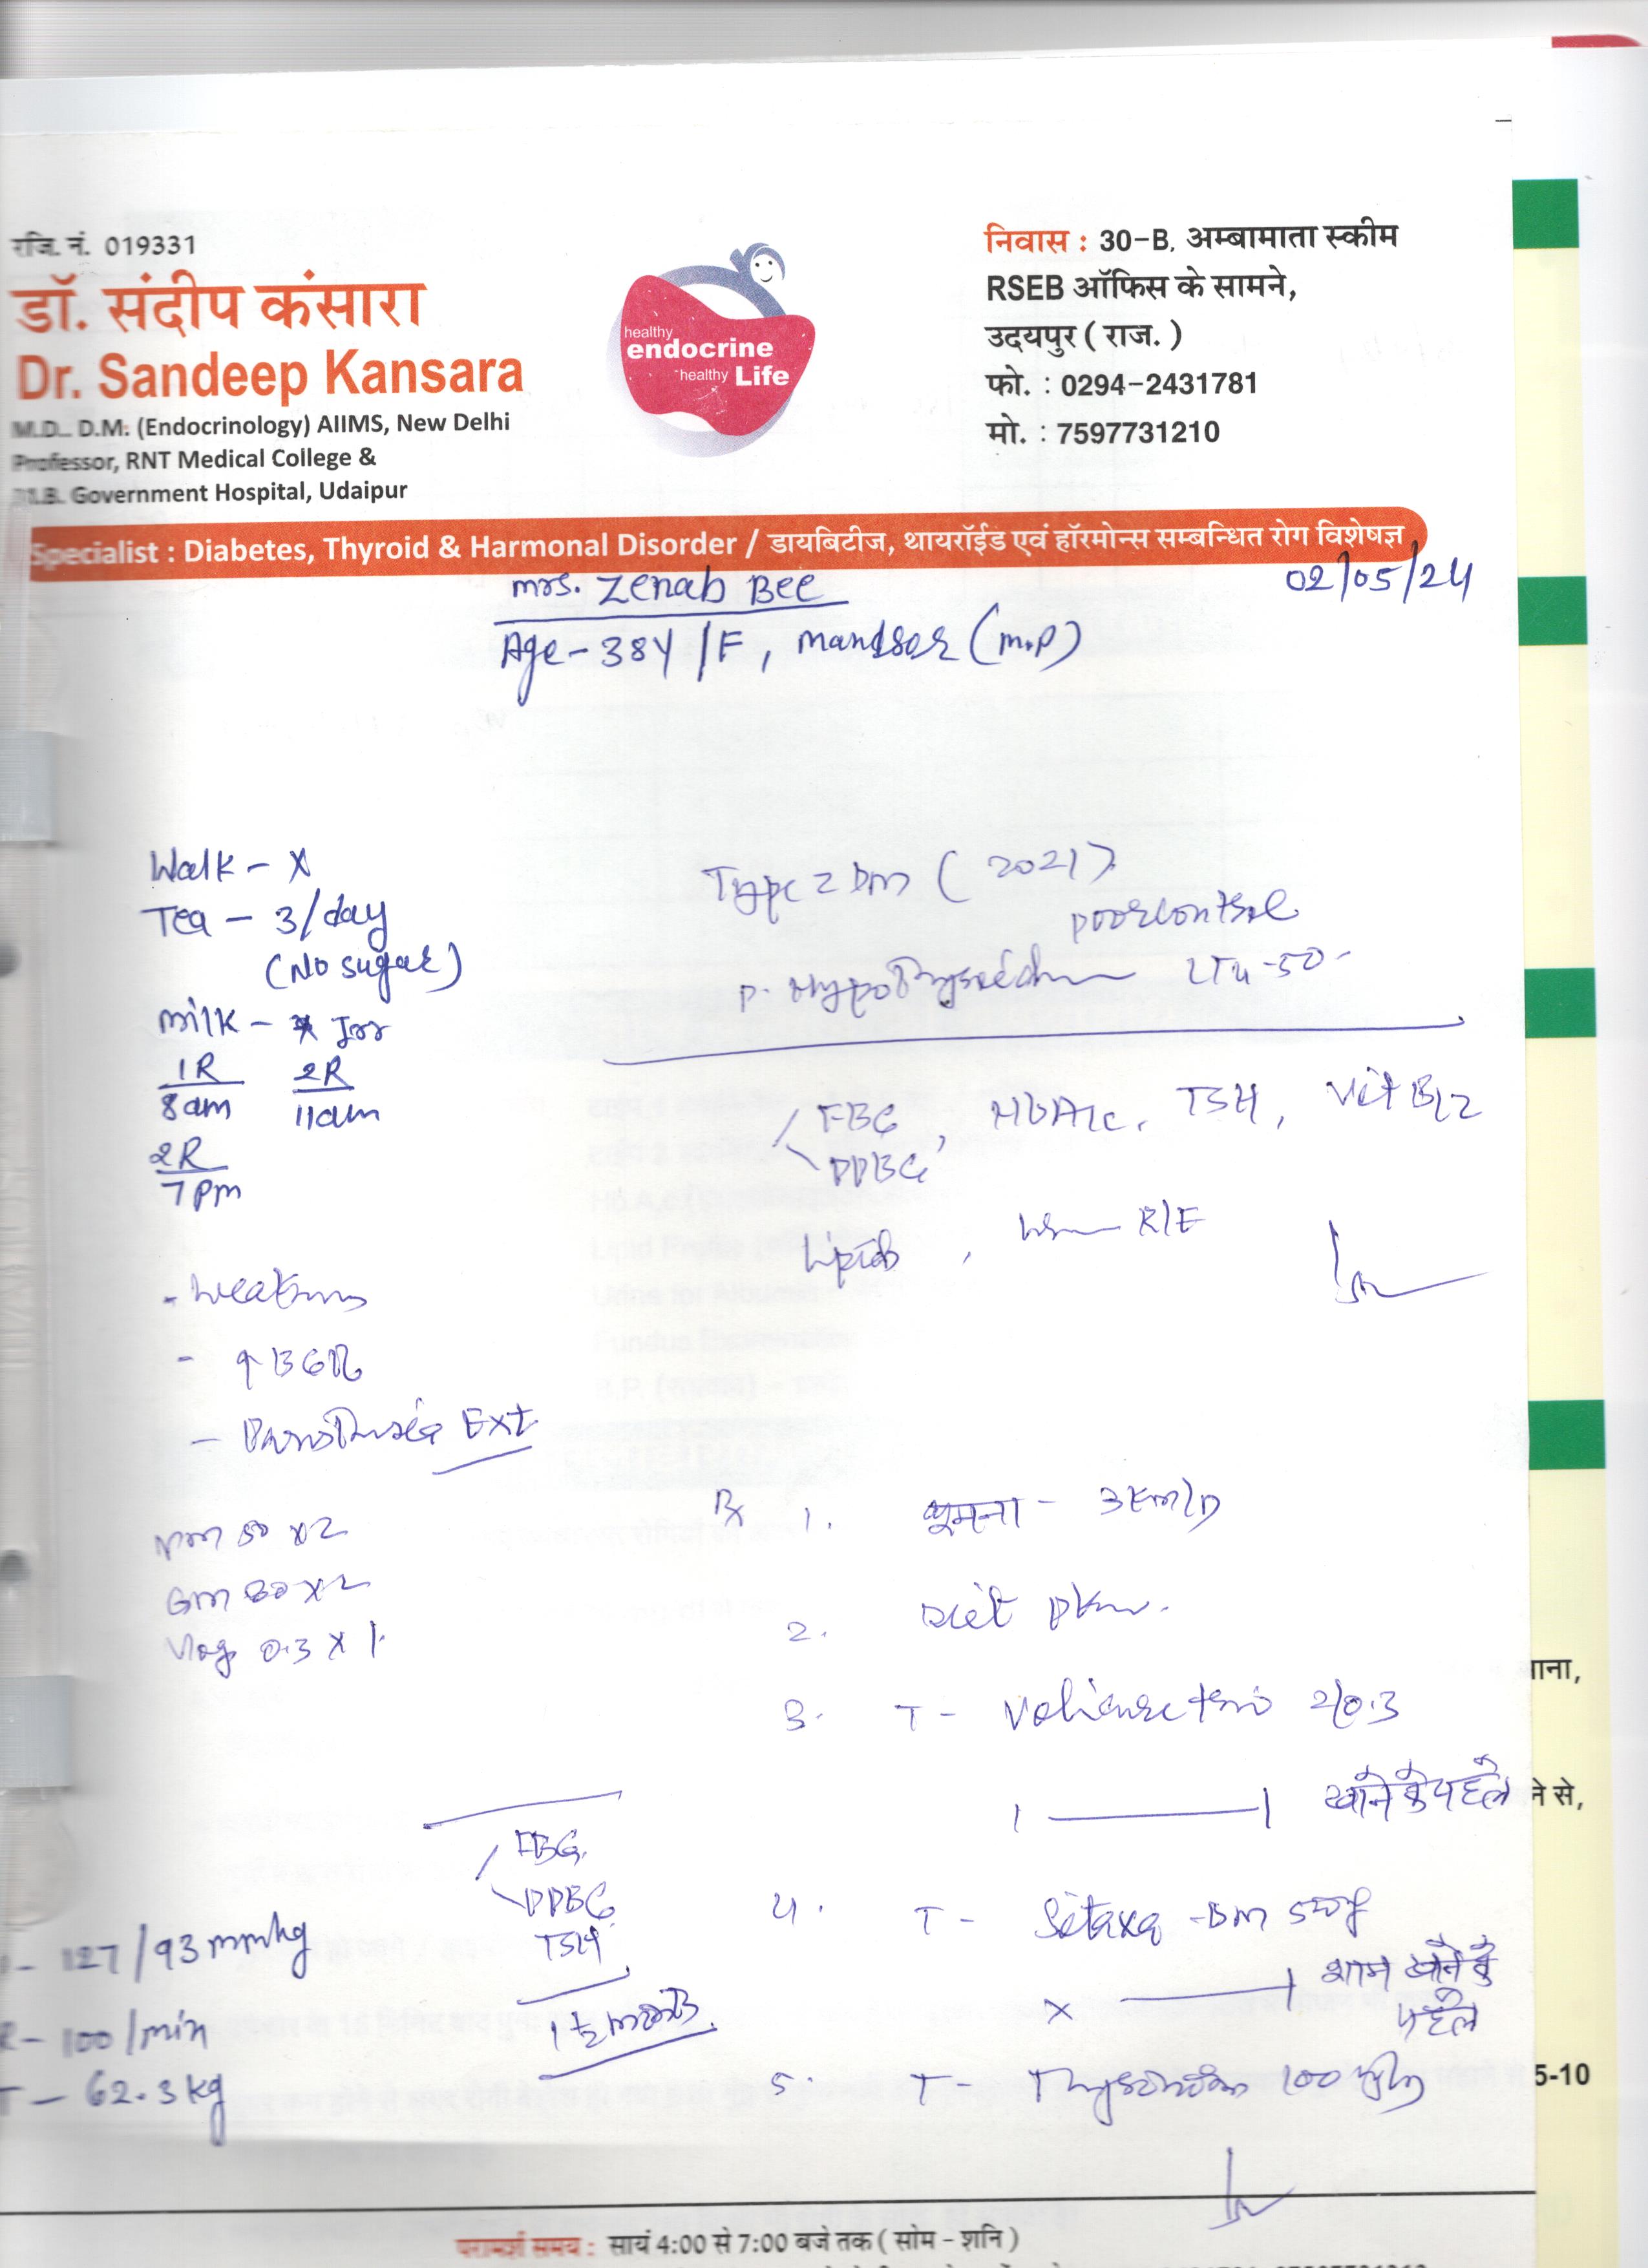 रजि. नं. 019331
डॉ. संदीप कंसारा
Dr. Sandeep Kansara
M.D. D.M. (Endocrinology) AIIMS, New Delhi
Professor, RNT Medical College &
M.B. Government Hospital, Udaipur
healthy
endocrine
healthy Life
निवास : 30-B, अम्बामाता स्कीम
RSEB ऑफिस के सामने,
उदयपुर ( राज. )
फो. : 0294-2431781
मो. : 7597731210
Specialist : Diabetes, Thyroid & Harmonal Disorder / डायबिटीज, थायरॉईड एवं हॉरमोन्स सम्बन्धित रोग विशेषज्ञ
02/05/24
Mrs. Zenab Bee
Age - 38Y /F, Mandsor (M.P)
Walk - X
Tea - 3/day
(No sugar)
Milk -
1R 2R
8am 11am
2R
7pm
- Weakness
- ↑ BG
- Ext
50 x 2
GM 80 x 2
0.3 x 1
Type 2 DM ( 2021 )
poor control
P. Hypothyroidism LT4 - 50
FBG, HbA1c, TSH, Vit B12
PPBG
Lipids, R/E
Rx 1. घूमना - 3 km/D
2. Diet plan.
3. T - trio 2/0.3
1 ——— 1 खाने के पहले
4. T - Sitaxa - DM
X ——— 1 शाम खाने के
पहले
5. T - 100
FBG
PPBG
TSH
1 1/2 month
- 127/93 mmhg
R - 100/min
T - 62.3 kg
ाना,
ने से,
5-10
परामर्श समय : सायं 4:00 से 7:00 बजे तक ( सोम - शनि )